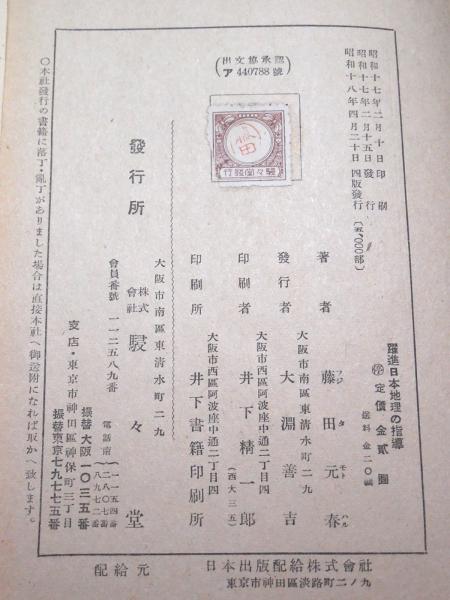 出文協承認
ア 440788 號
昭和十七年二月十日印刷
昭和十七年二月十五日發行
昭和十八年四月二十日四版發行(五,000部)
躍進日本地理の指導
㊞ 定價金貳圓
送料金二〇錢
著者 藤田元春
フジ タ モト ハル
大阪市南區東清水町二九
發行者 大淵善吉
大阪市西區阿波座中通二丁目四
印刷者 井下精一郎
(西大三五)
大阪市西區阿波座中通二丁目四
印刷所 井下書籍印刷所
駸々堂發行
發行所
大阪市南區東清水町二九
株式會社 駸々堂
會員番號 一一二五八九番
電話南
振替大阪一〇三五番
支店・東京市神田區神保町三丁目
振替東京七九七七五番
〇本社發行の書籍に落丁・亂丁がありました場合は直接本社へ御送附になれば取かへ致します。
配給元 日本出版配給株式會社
東京市神田區淡路町二ノ九